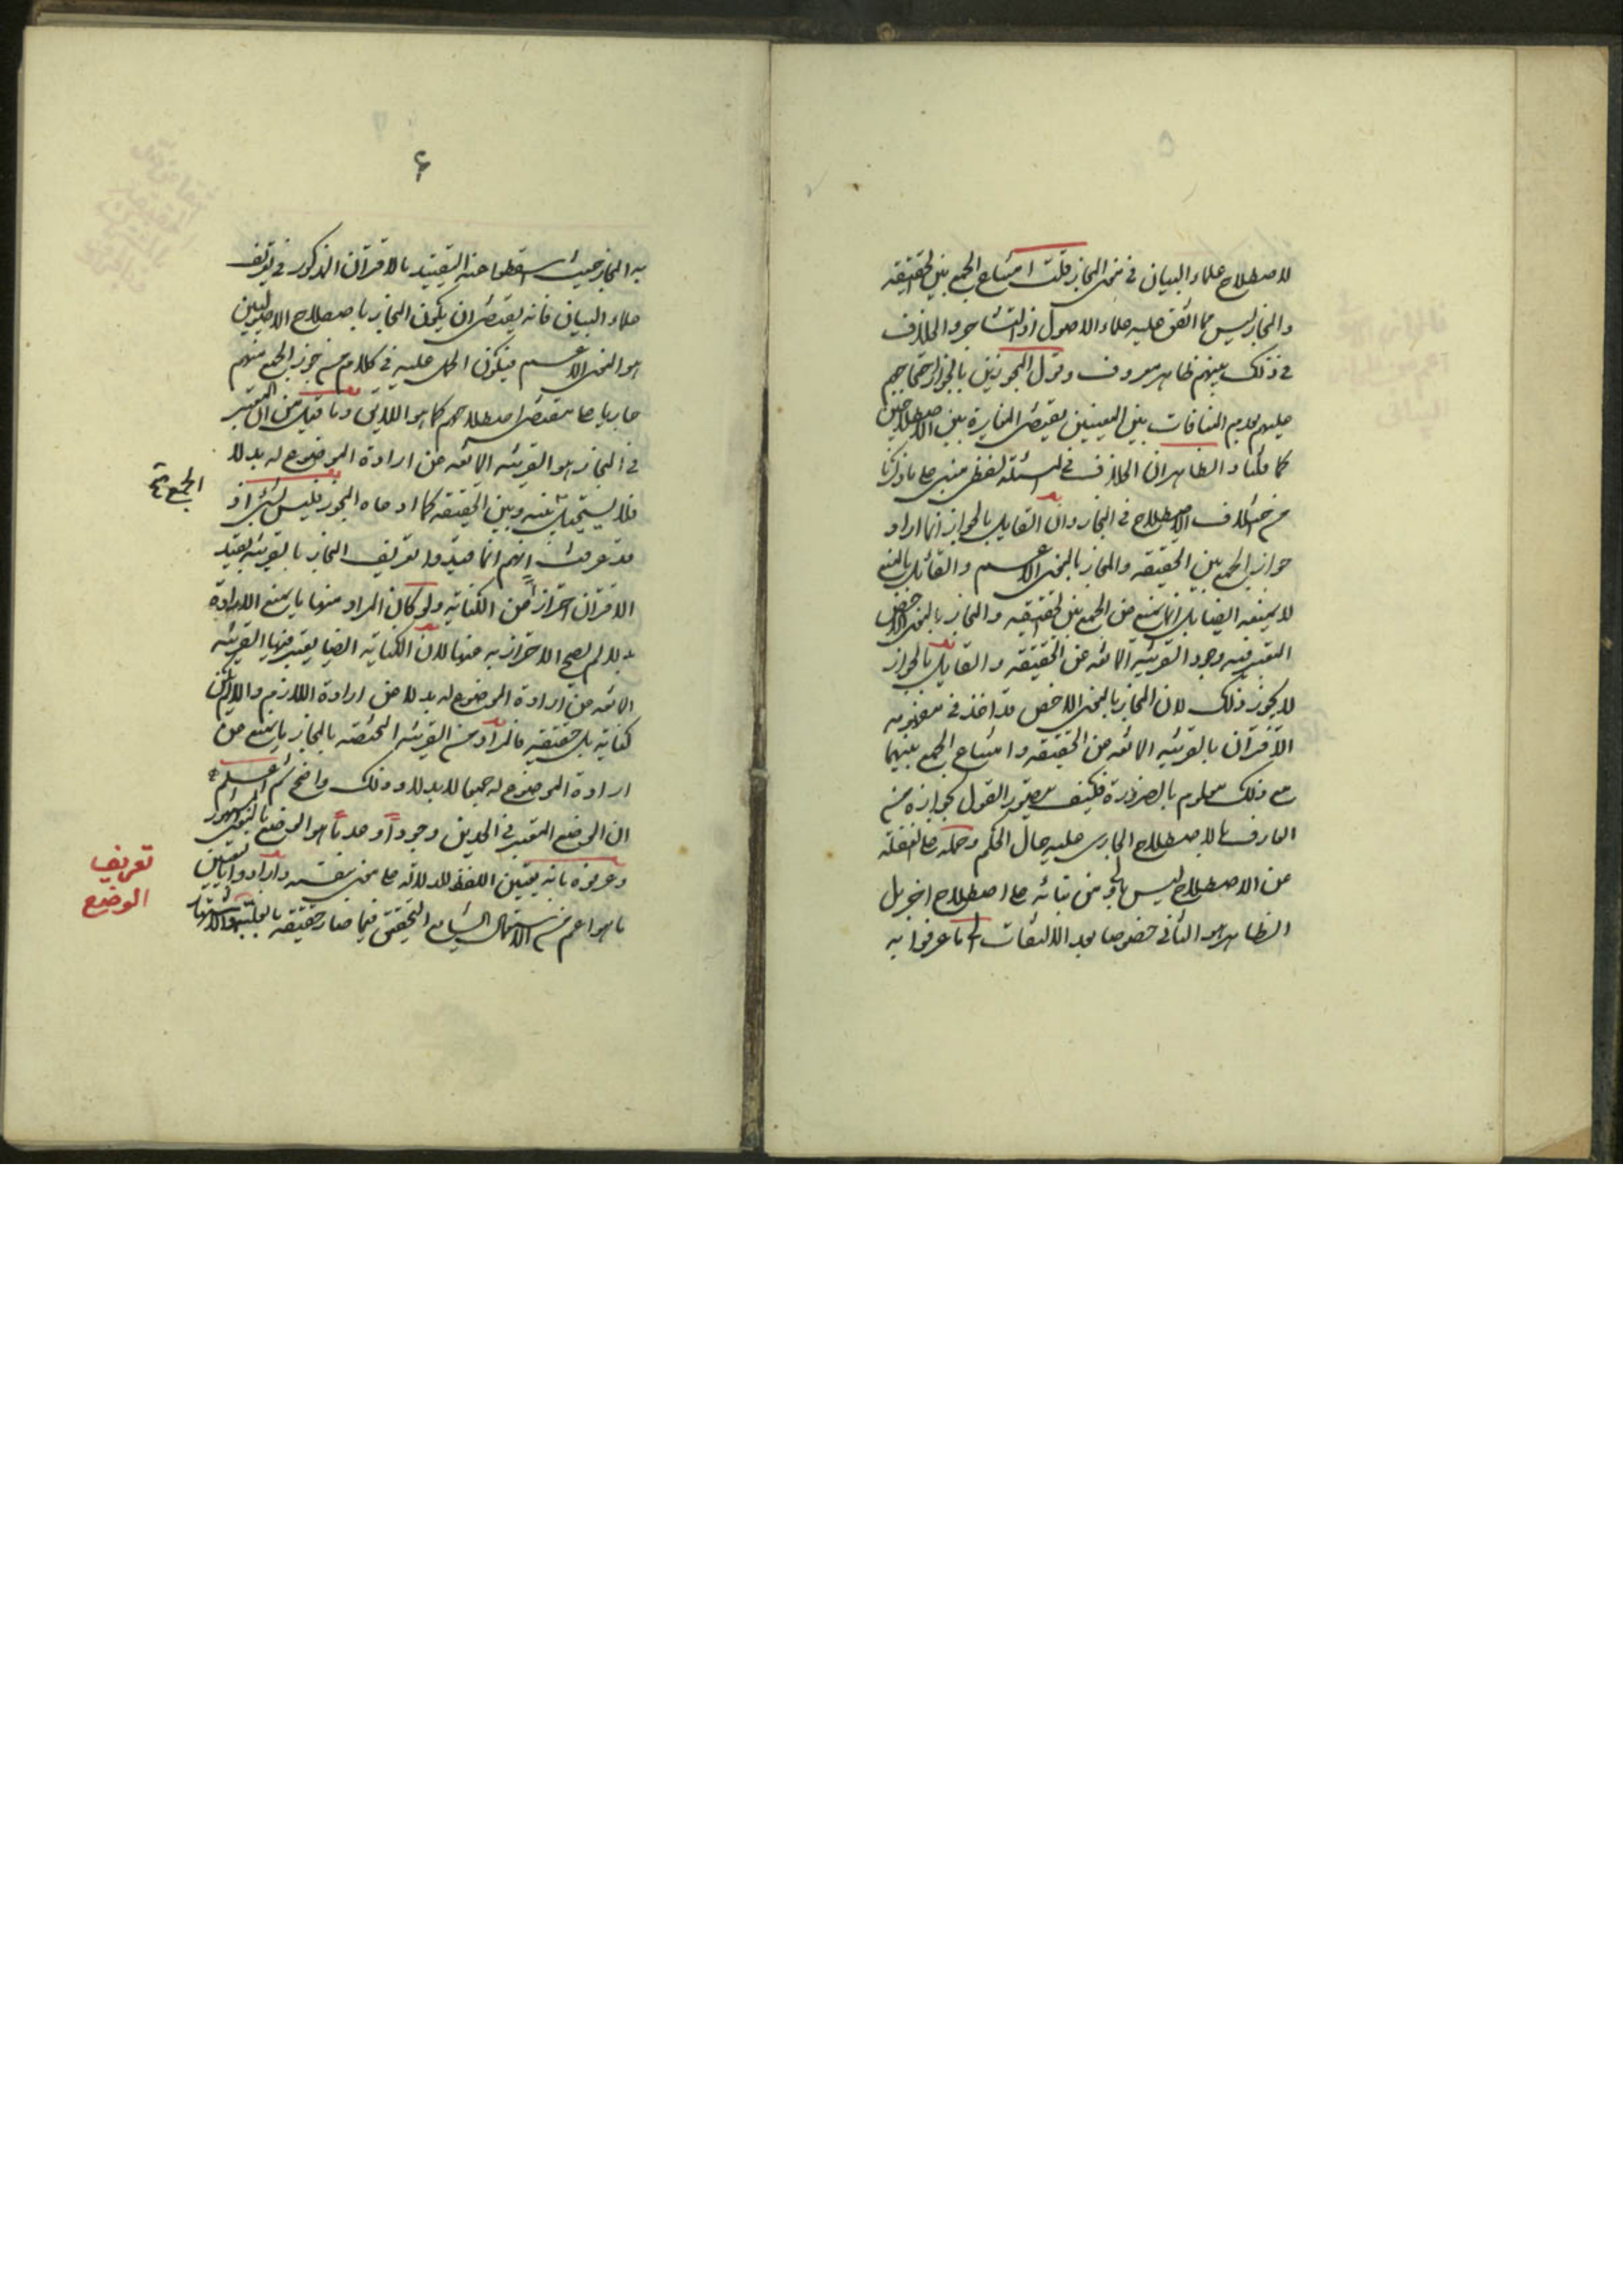 لاصطلاح علماء البيان في معنى المجاز قلت امتناع الجمع بين الحقيقة
والمجاز ليس مما اتفق عليه علماء الاصول اذ التشاجر والخلاف
في ذلك بينهم ظاهر معروف وقول المجوزين بالجواز احتجاجهم
عليهم بعدم المنافات بين المعنيين يقتضى المغايرة بين الاصطلاحين
كما قلنا والظاهر ان الخلاف في المسئلة لفظى مبنى على ما ذكرنا
من اختلاف الاصطلاح في المجاز وان القايل بالجواز انما اراد
جواز الجمع بين الحقيقه والمجاز بالمعنى الاعم والقائل بالمنع
لا يمنعه ايضا بل انما يمنع من الجمع بين الحقيقه والمجاز بالمعنى الاخص
المعتبر فيه وجود القرينه المانعه عن الحقيقه والقايل بالجواز
لا يجوز ذلك لان المجاز بالمعنى الاخص قد اخذ في مفهومه
الاقتران بالقرينه المانعه عن الحقيقه وامتناع الجمع بينهما
مع ذلك معلوم بالضرورة فكيف يتصور القول بجوازه من
العارف بالاصطلاح الجارى عليه حال الحكم وحمله على الغفلة
عن الاصطلاح ليس باولى من بنائه على اصطلاح اخر بل
الظاهر هو الثاني خصوصا بعد الالتفات الى ما عرفوا به
۶
به المجاز حيث اسقطوا عنه التقييد بالاقتران المذكور في تعريف
علماء البيان فانه يقتضى ان يكون المجاز باصطلاح الاصوليين
هو المعنى الاعم فيكون الحمل عليه في كلام من جوز الجمع منهم
جاريا على مقتضى اصطلاحهم كما هو اللايق وما قيل من ان المعتبر
في المجاز هو القرينه المانعه عن ارادة الموضوع له بدلا
فلا يستحيل بينه وبين الحقيقه كما ادعاه المجوز فليس بشئ اذ
الجمع
قد عرفت انهم انما قيدوا تعريف المجاز بالقرينه بقيد
الاقتران احترازا عن الكناية ولو كان المراد منها ما يمنع الارادة
بدلا لم يصح الاحتراز به عنها لان الكناية ايضا يعتبر فيها القرينه
المانعه عن ارادة الموضوع له بدلا عن ارادة اللازم والا لم يكن
كناية بل حقيقه فالمراد من القرينه المختصه بالمجاز ما يمنع من
ارادة الموضوع له جمعا لا بدلا وذلك واضح ثم اعلم
ان الوضع المعتبر في الحدين وجودا وعدما هو الوضع بالمعنى المشهور
وعرفوه بانه تعيين اللفظ للدلالة على معنى بنفسه وارادوا بالتعيين
ما هو اعم من الاستعمال الشايع المتحقق فيما صار حقيقه بالغلبة والاشتهار
تعريف
الوضع